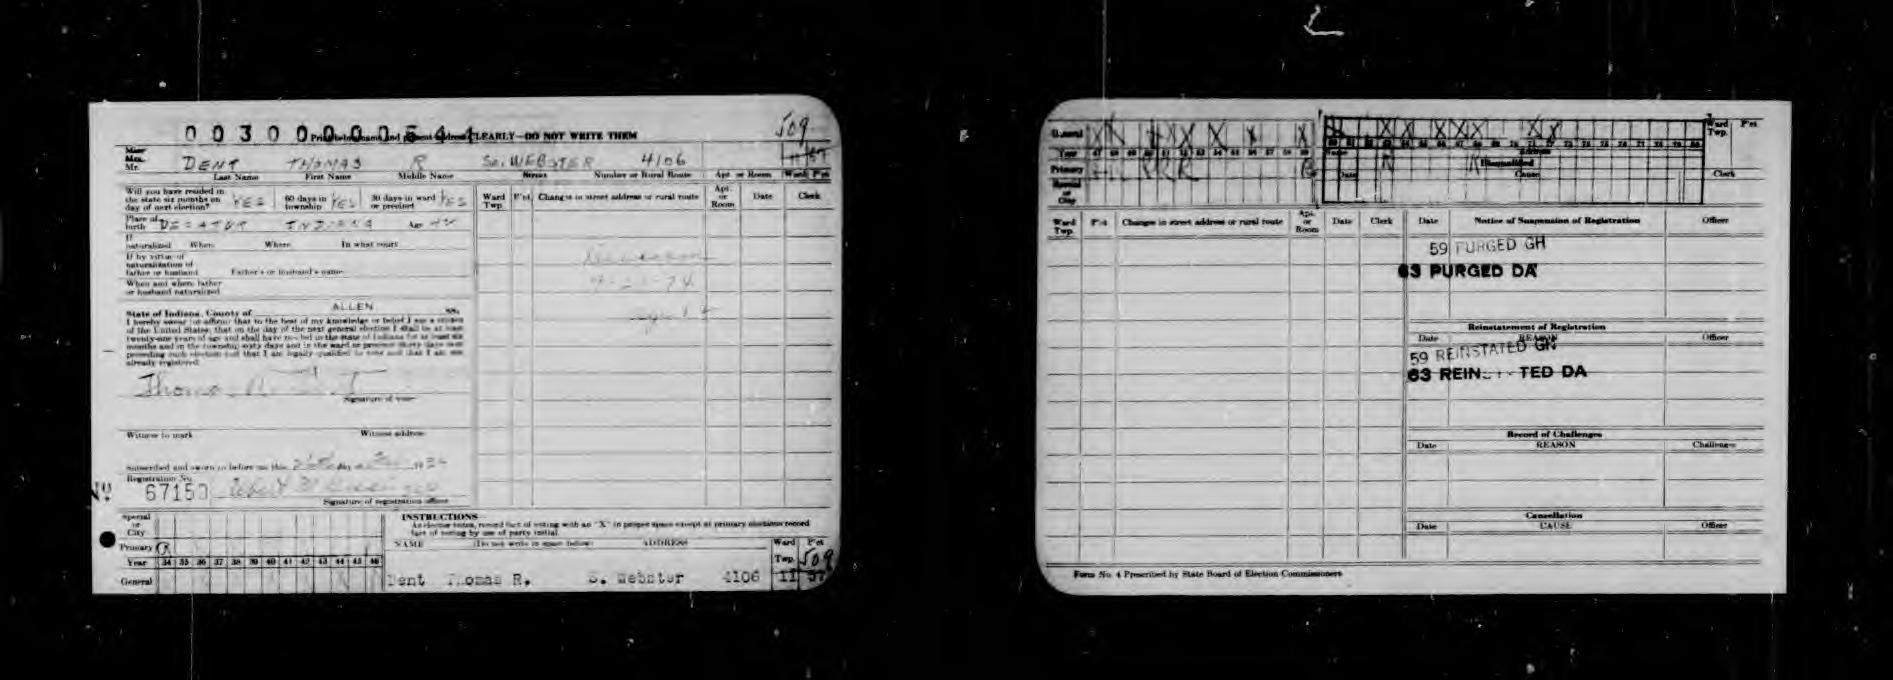 003000544
Print below name and present address CLEARLY—DO NOT WRITE THEM
509
Miss
Mrs.
Mr. DENT THOMAS R So. WEBSTER 4106 11 57
Last Name First Name Middle Name Street Number or Rural Route Apt. or Room Ward P'ct
Will you have resided in
the state six months on
day of next election? YES 60 days in
township YES 30 days in ward
or precinct YES
Place of
birth DECATUR INDIANA Age
If
naturalized When Where In what court
If by virtue of
naturalization of
father or husband Father's or husband's name
When and where father
or husband naturalized
State of Indiana, County of ALLEN ss.
I hereby swear (or affirm) that to the best of my knowledge or belief I am a citizen
of the United States; that on the day of the next general election I shall be at least
twenty-one years of age and shall have resided in the state of Indiana for at least six
months and in the township sixty days and in the ward or precinct thirty days next
preceding such election and that I am legally qualified to vote and that I am not
already registered.
Thomas
Signature of voter
Witness to mark Witness address
Subscribed and sworn to before me this day
Registration No.
No 67150 Robert
Signature of registration officer
Ward
Twp. P'ct. Changes in street address or rural route Apt.
or
Room Date Clerk
Special
or
City
Primary R
Year 34 35 36 37 38 39 40 41 42 43 44 45 46
General
INSTRUCTIONS
As elector votes, record fact of voting with an "X" in proper space except at primary elections record
fact of voting by use of party initial.
NAME (Do not write in space below) ADDRESS Ward
Twp. P'ct
509
Dent Thomas R. S. Webster 4106 11 57
General X X X X X X X X X
Year 47 48 49 50 51 52 53 54 55 56 57 58 59
Primary R R R
Special
or
City
60 61 62 63 64 65 66 67 68 69 70 71 72 73 74 75 76 77 78 79 80
Name Address
Disqualified
Date Cause Clerk
Ward
Twp. P'ct
Ward
Twp. P'ct Changes in street address or rural route Apt.
or
Room Date Clerk
Date Notice of Suspension of Registration Officer
59 PURGED GH
63 PURGED DA
Reinstatement of Registration
Date REASON Officer
59 REINSTATED GH
63 REIN TED DA
Record of Challenges
Date REASON Challenger
Cancellation
Date CAUSE Officer
Form No. 4 Prescribed by State Board of Election Commissioners